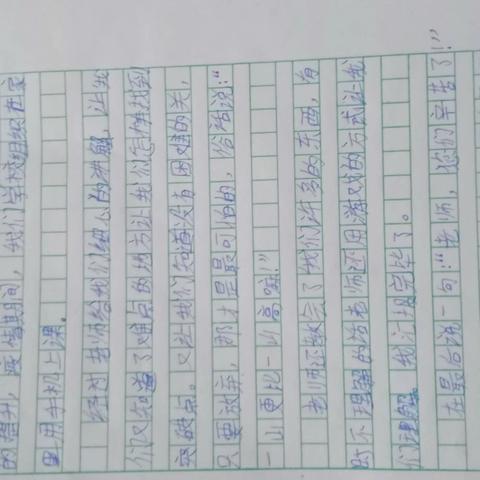 的提升，疫情期间，我们学校组织在家
用手机上课。
经过老师给我们细心的讲解，让我
们又知道了难点的地方让我们怎样找到
突破点。又让我们知道没有困难的关，
只要放弃，那才是最可怕的，俗话说：“
一山更比一山高嘛！”
老师还教会了我们许多的东西，有
时不理解的话老师还用游戏的方式让我
们理解。我汇报完毕了。
在最后说一句：“老师，你们辛苦了！”